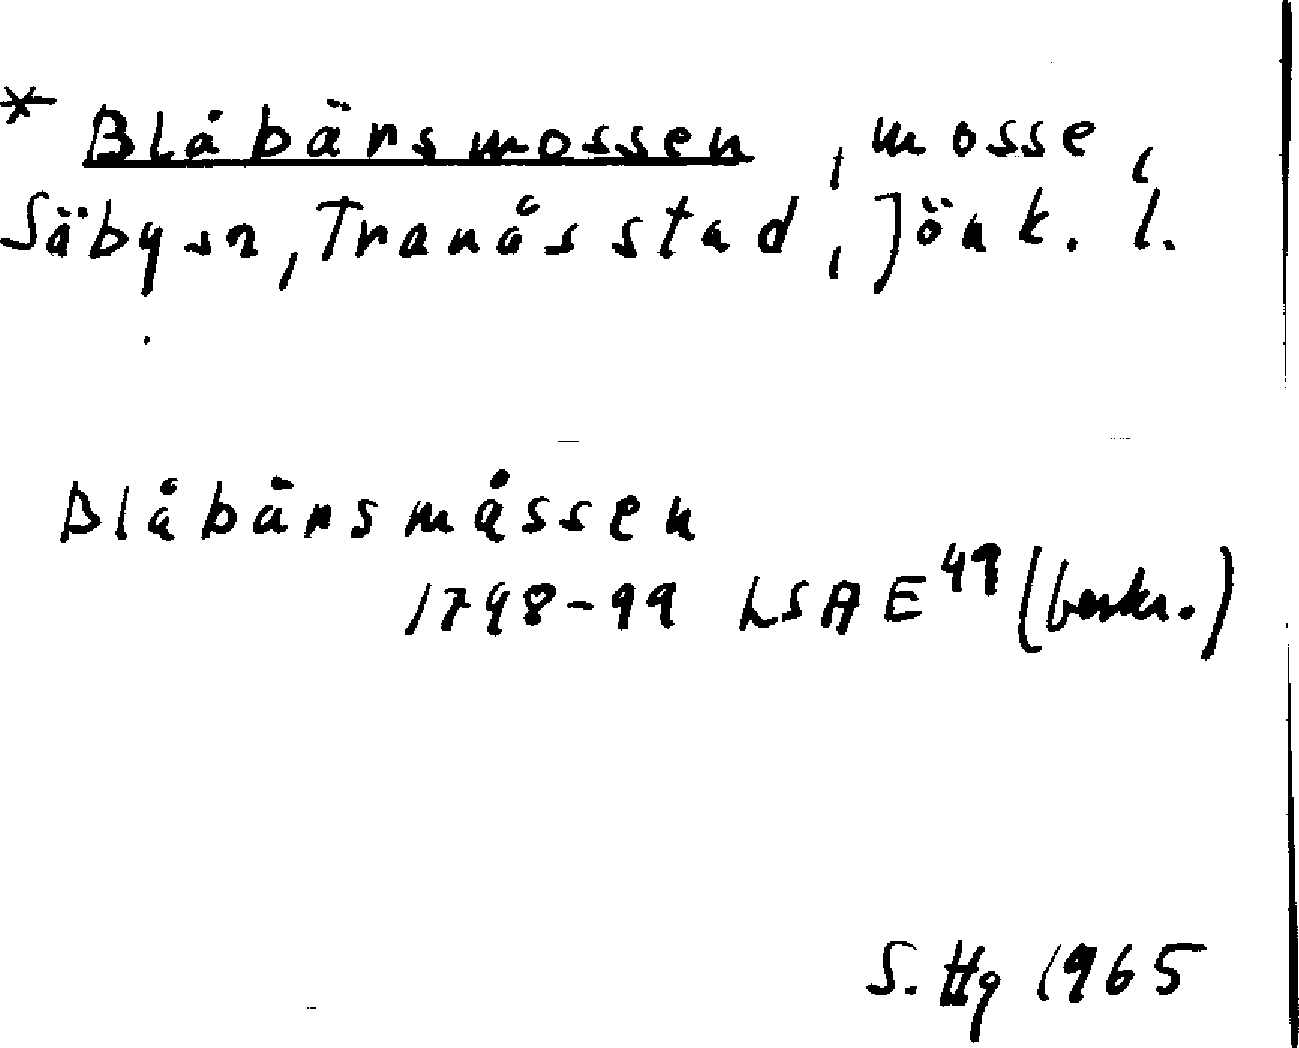 * Blåbärsmossen, mosse,
Säbysn, Tranås stad, Jönk. l.
Blåbärsmåssen
1798-99 LSA E 49 (beskr.)
S. Hg 1965